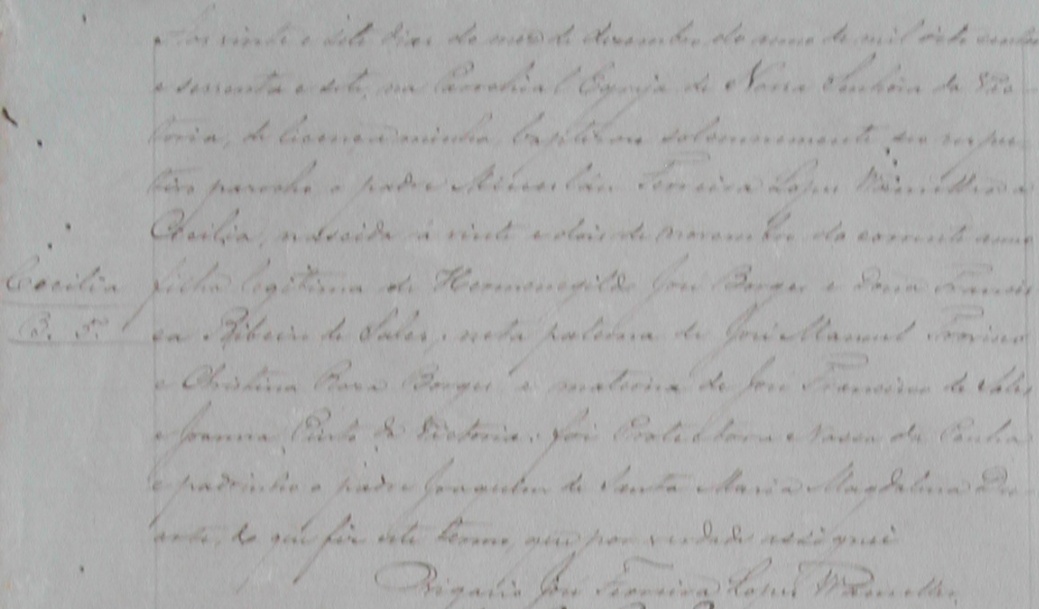 Aos vinte e sete dias do mez de dezembro do anno de mil oito centos
e sessenta e sete, na Parochial Egreja de Nossa Senhora da Vic-
toria, de licença minha, baptizou solemnemente seo respec-
tivo parocho o padre Ferreira Lopes a
Cecilia, nascida á vinte e dois de novembro do corrente anno
Cecilia
filha legitima de Hermenegildo José Borges e Dona Francis
B. 5.
ca Ribeiro de Sales, neta paterna de José Manoel
e Christina Rosa Borges e materna de José Francisco de Sales
e Joanna Pinto da Victoria. foi Protectora Nossa da Penha
e padrinho o padre Joaquim de Santa Maria Magdalena Du-
arte, do que fiz este termo, que por verdade assignei
Vigario José Ferreira Lopes